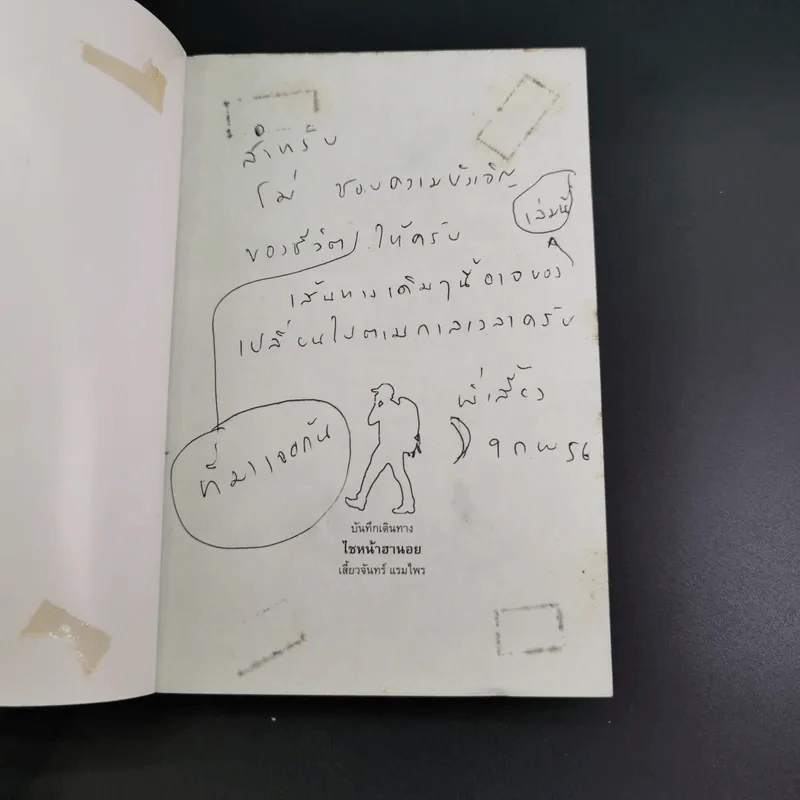 สำหรับ
โม่ ชอบความบังเอิญ
เล่มนี้
ของชีวิต ให้ครับ
เส้นทางเดิมๆนี้อาจของ
เปลี่ยนไปตามกาลเวลาครับ
ที่มาเจอกัน
พี่เสี้ยว
9 กพ 56
บันทึกเดินทาง
ไซหน้าฮานอย
เสี้ยวจันทร์ แรมไพร